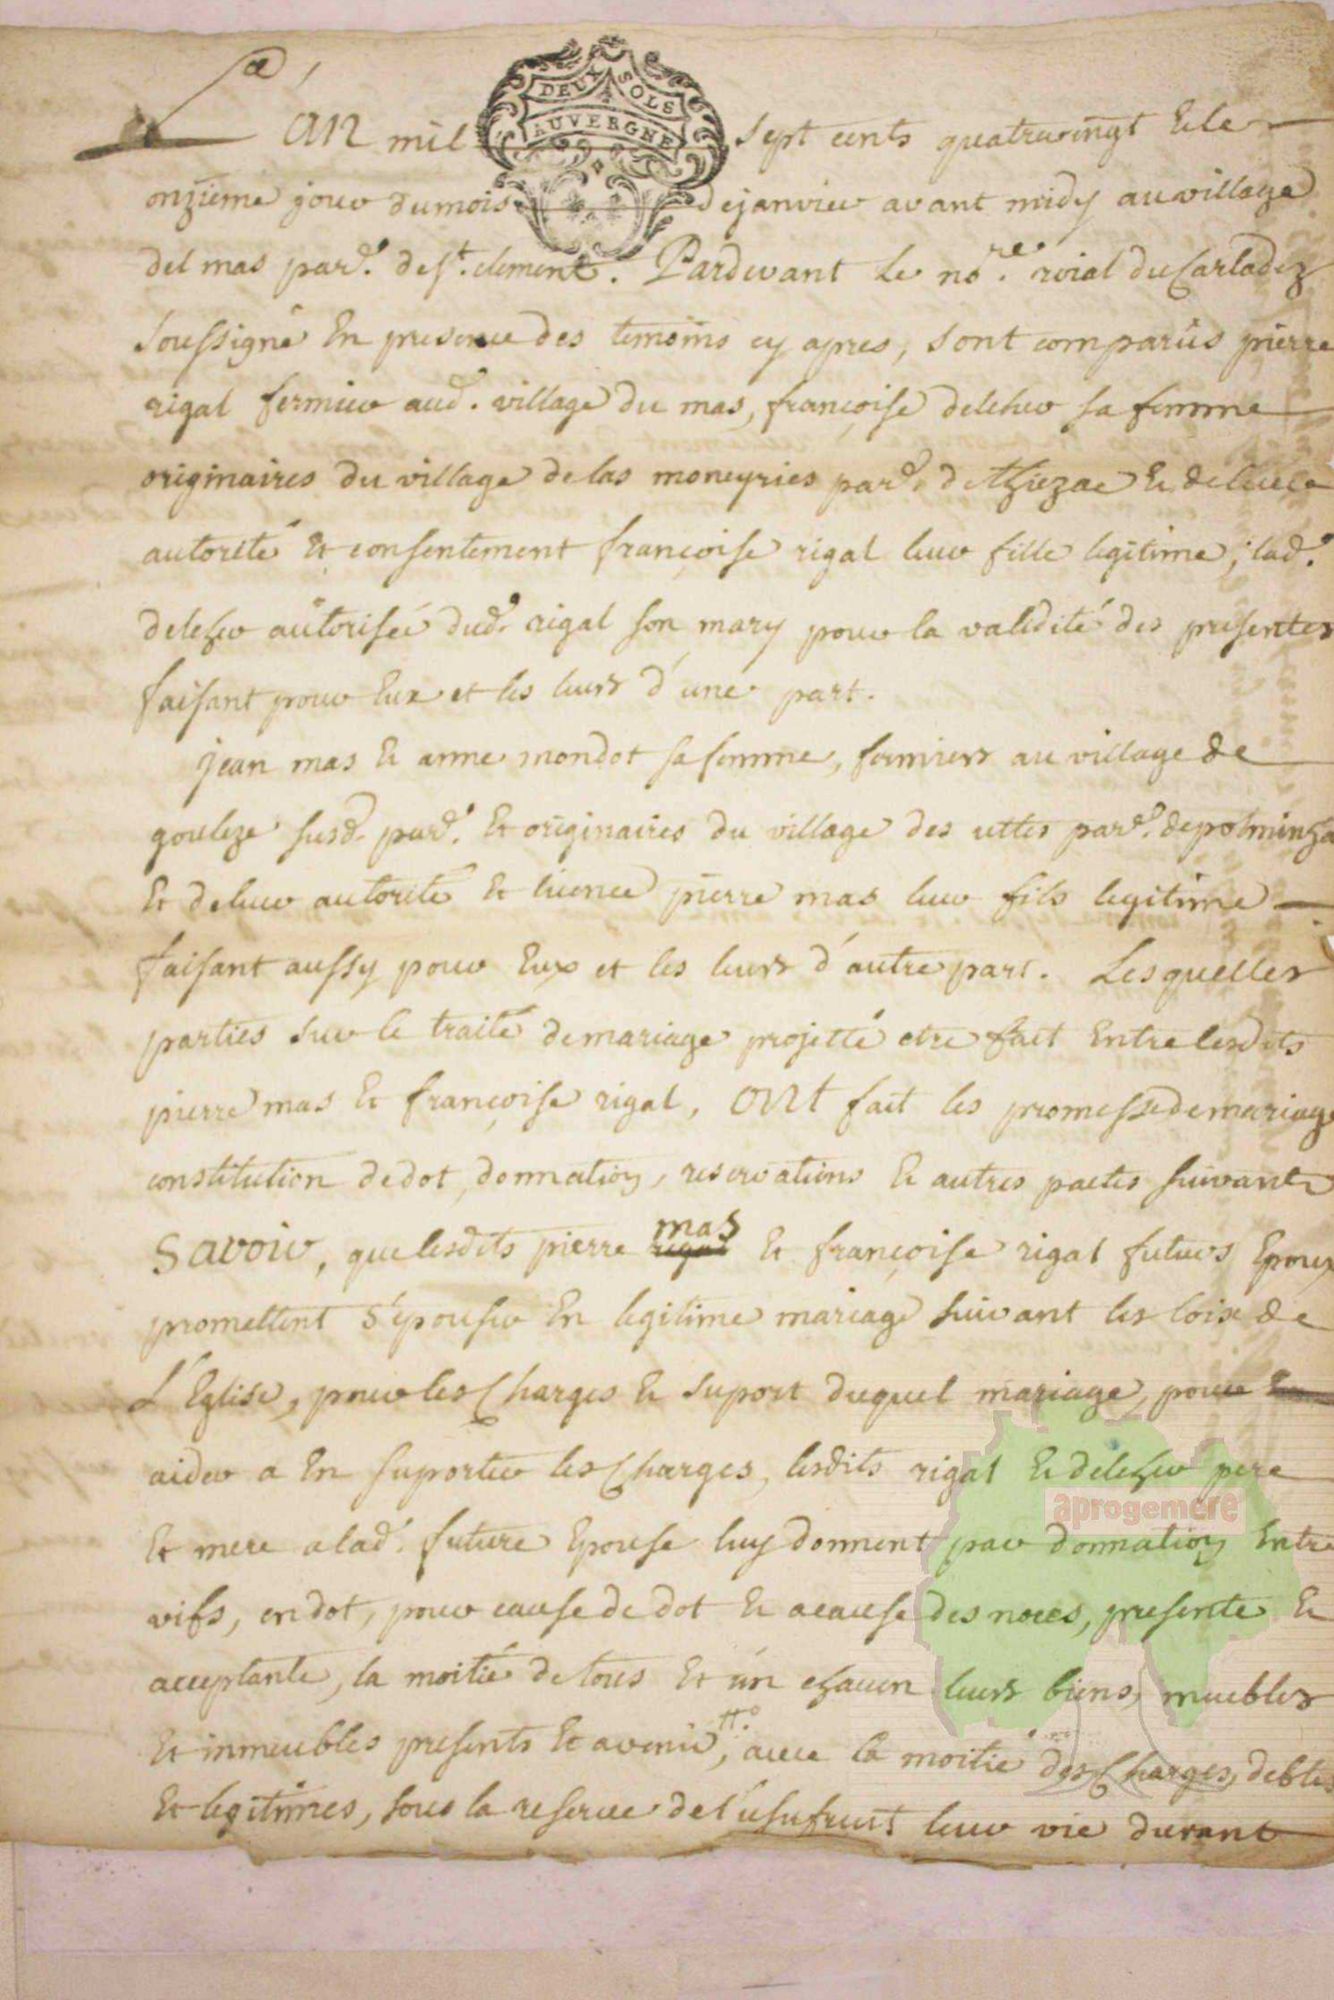 L'an mil sept cents quatrevingt & le
DEUX SOLS
AUVERGNE
onzieme jour du mois de janvier avant midy au village
del mas par^e. de s^t. clement. Pardevant le no^re. roial du Carladez
soussigné En presence des temoins cy apres, sont comparüs pierre
rigal fermier aud^t. village du mas, françoise delcher sa femme
originaires du village de las moneyries par^e. de thiezac & de leur
autorité et consentement françoise rigal leur fille legitime, lad^e.
delcher autorisée dud^t. rigal son mary pour la validité des presentes
faisant pour Eux et les leurs d'une part.
jean mas & anne mondot sa femme, fermiers au village de
gouleze susd^e. par^e. Et originaires du village des par^e. de polminha
Et de leur autorité et licence pierre mas leur fils legitime
faisant aussy pour Eux et les leurs d'autre part. Lesquelles
parties sur le traité de mariage projetté etre fait Entre lesdits
pierre mas & françoise rigal, ONt fait les promesses de mariage
constitution de dot, donnation, reservations & autres pactes suivants
Savoir, que lesdits pierre mas & françoise rigal futurs Epoux
promettent s'épouser En legitime mariage suivant les loix de
L'Eglise, pour les Charges & suport duquel mariage, pour
aider a En suporter les Charges, lesdits rigal & delcher pere
Et mere a lad^e. future Epouse luy donnent par donnation Entre
vifs, en dot, pour cause de dot & acause des noces, presente &
acceptante, la moitié de tous Et ún chacun leurs biens, meubles
Et inmeubles presents Et avenir, avec la moitié des Charges, debtes
Et legitimes, sous la reserve de l'usufruit leur vie durant
aprogemere